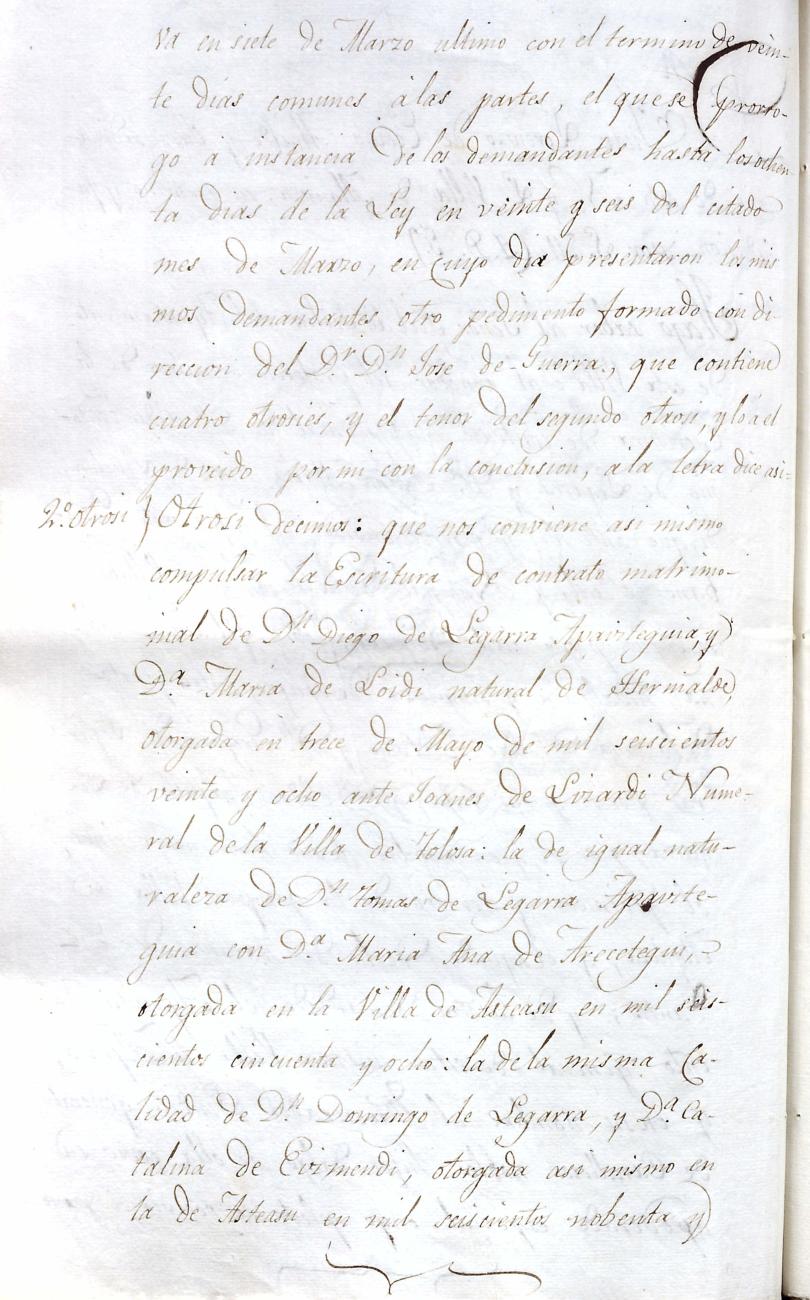 va en siete de Marzo ultimo con el termino de vein-
te dias comunes à las partes, el que se prorro-
go a instancia de los demandantes hasta los ochen-
ta dias de la Ley en veinte y seis del citado
mes de Marzo, en cuyo dia presentaron los mis
mos demandantes otro pedimento formado con di-
reccion del Dr. Dn. Jose de Guerra, que contiene
cuatro otrosies, y el tenor del segundo otrosi, y lo a el
proveido por mi con la conclusion, a la letra dice asi=
2º. otrosi } Otrosi decimos: que nos conviene asi mismo
compulsar la Escritura de contrato matrimo-
nial de Dn. Diego de Legarra Apaizteguia, y
Da. Maria de Loidi natural de Hernialde,
otorgada en trece de Mayo de mil seiscientos
veinte y ocho ante Joanes de Lizardi Nume-
ral de la Villa de Tolosa: la de igual natu-
raleza de Dn. Tomas de Legarra Apaizte-
guia con Da. Maria Ana de Arecetegui,
otorgada en la Villa de Asteasu en mil seis-
cientos cincuenta y ocho: la de la misma Ca-
lidad de Dn. Domingo de Legarra, y Da. Ca-
talina de Eizmendi, otorgada asi mismo en
la de Asteasu en mil seiscientos nobenta y